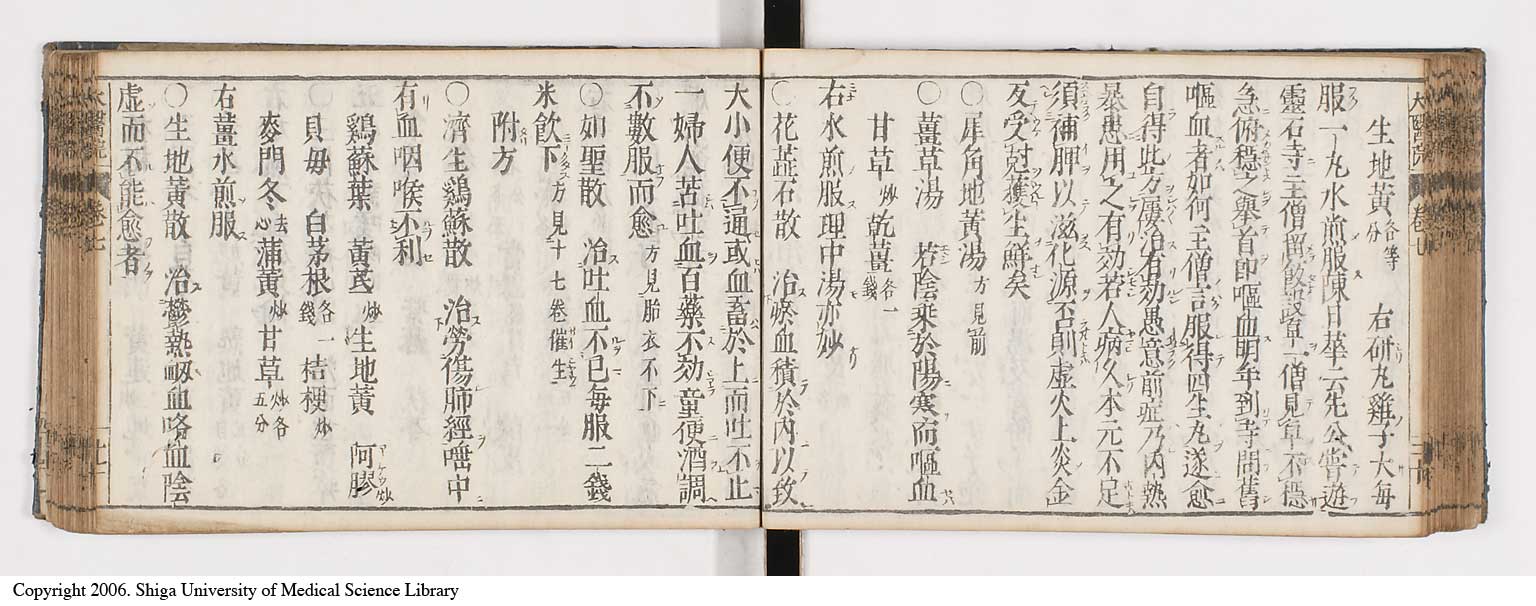 生地黃各等分 右研丸雞子大每
服一丸水煎服陳日華云先公嘗遊
靈石寺主僧留飯設一僧見卓不穩
急俯穩之擧首即嘔血明年到寺問舊
嘔血者如何主僧言服得四生丸遂愈
自得此方屢治有効愚意前症乃內熱
暴患用之有効若人病久本元不足
須補脾以滋化源否則虛火上炎金
反受尅獲生鮮矣
○犀角地黃湯方見前
○薑草湯 若陰乘於陽寒而嘔血
甘草炒乾薑各一錢
右水煎服理中湯亦妙
○花蕋石散 治瘀血積於內以致
大小便不通或血畜於上而吐不止
一婦人苦吐血百藥不効童便酒調
不數服而愈方見胎衣不下
○如聖散 治吐血不已每服二錢
米飮下方見十七卷催生
附方
○濟生鷄蘇散 治勞傷肺經唾中
有血咽喉不利
鷄蘇葉 黃芪炒生地黃 阿膠炒
貝母 白茅根各一錢 桔梗炒
麥門冬去心蒲黃炒甘草炒各五分
右薑水煎服
○生地黃散 治鬱熱衂血咯血陰
虛而不能愈者